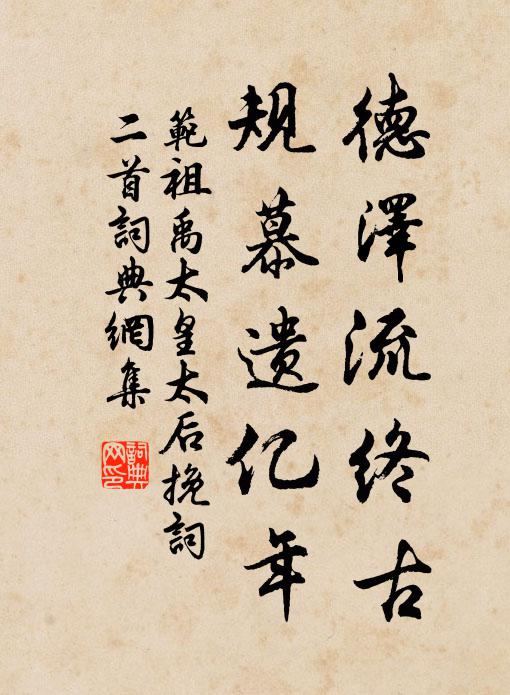 德澤流終古
規慕遺亿年
範祖禹太皇太后挽詞
二首詞典網集
詞典
网印